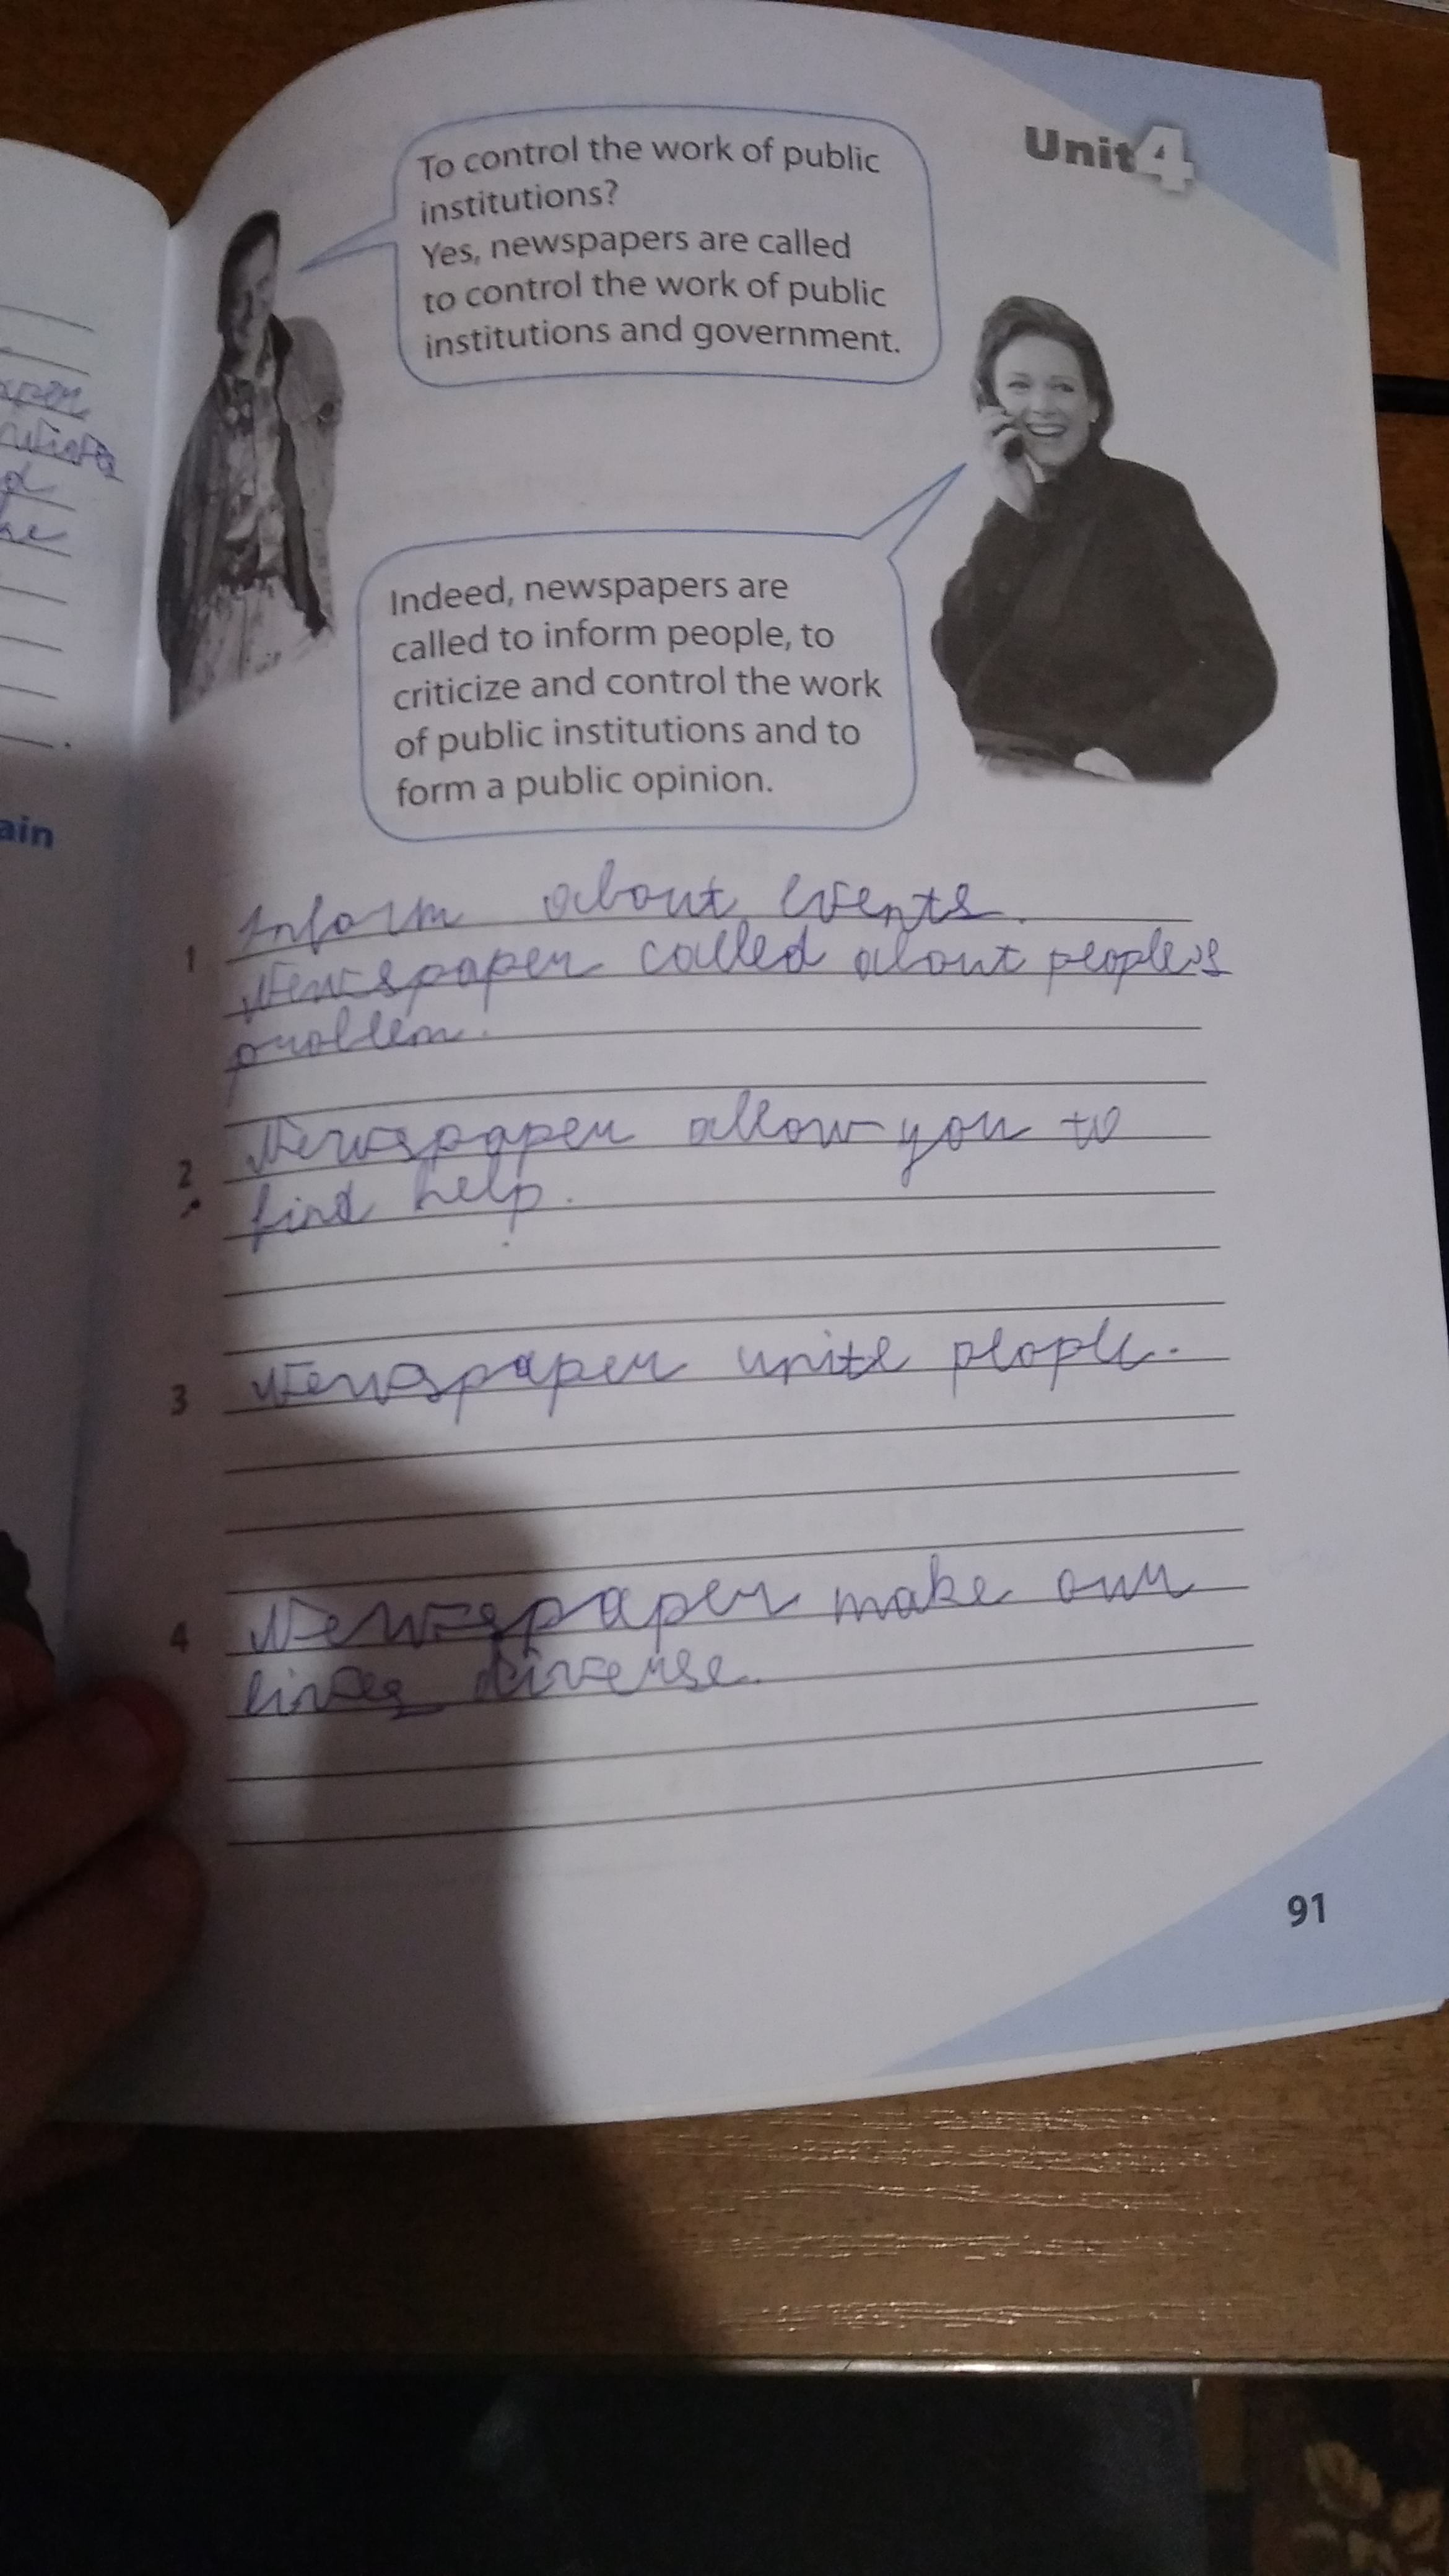 Unit 4
To control the work of public
institutions?
Yes, newspapers are called
to control the work of public
institutions and government.
Indeed, newspapers are
called to inform people, to
criticize and control the work
of public institutions and to
form a public opinion.
ain
1 Inform about events.
Newspaper called about people's
problem.
2 Newspaper allow you to
find help.
3 Newspaper unite people.
4 Newspaper make our
lives diverse.
91